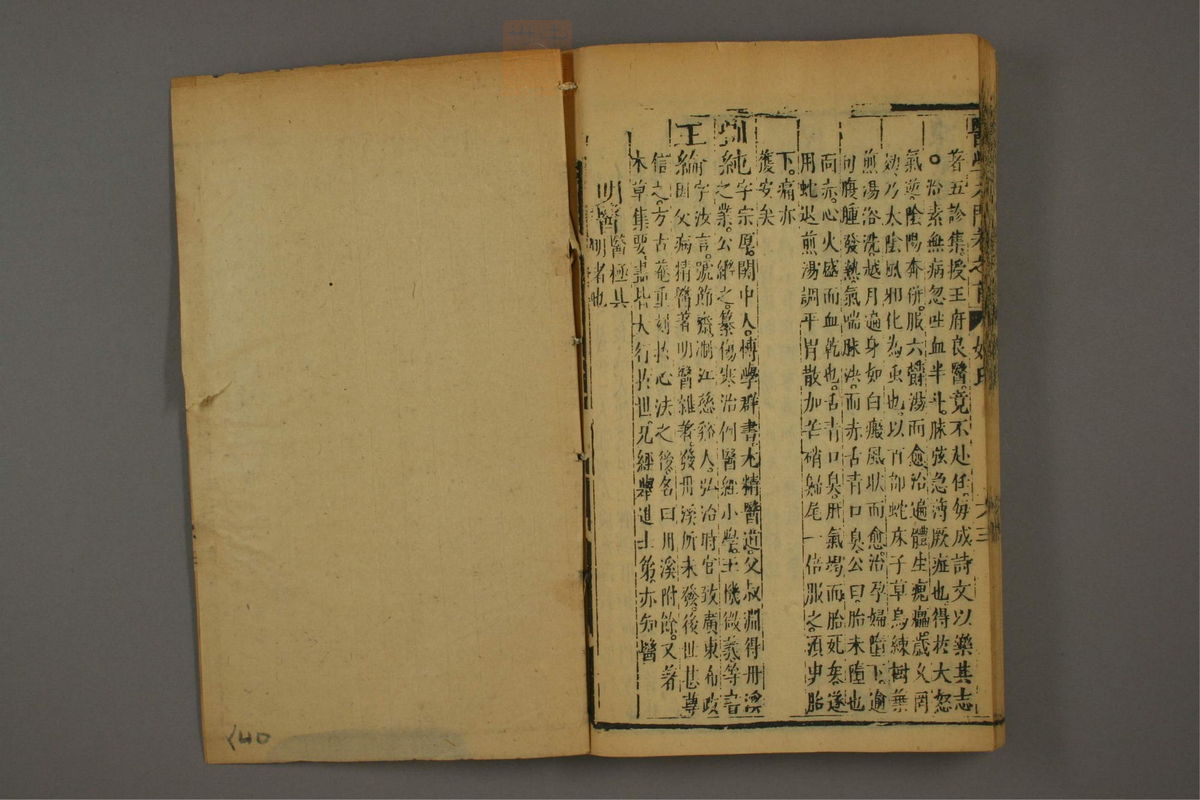 醫學入門卷之首 姓氏 六三
著五診集授王府良醫竟不赴任每成詩文以樂其志
○治素無病忽吐血半斗脉弦急薄厥症也得於大怒
氣逆陰陽奔併服六鬱湯而愈治遍體生瘣癗歲久罔
効乃太陰風邪化為虫也以百部蛇床子草烏楝樹葉
煎湯浴洗越月遍身如白癜風狀而愈治孕婦墮下逾
旬腹腫發熱氣喘脉洪而赤舌青口臭公曰胎未墮也
面赤心火盛而血乾也舌青口臭肝氣竭而胎死矣遂
用蛇退煎湯調平胃散加芒硝歸尾一倍服之須臾胎
下痛亦
獲安矣
劉純字宗厚關中人博學群書尤精醫道父叔淵得丹溪
之業公繼之纂傷寒治例醫經小學玉機微義等書
王綸字汝言號節齋浙江慈谿人弘治時官致廣東布政
因父病精醫著明醫雜著發丹溪所未發後世甚尊
信之方古菴重刻於心法之後名曰丹溪附餘又著
本草集要書皆大行於世兄經舉進士第亦知醫
明醫 醫極其
明者也
140